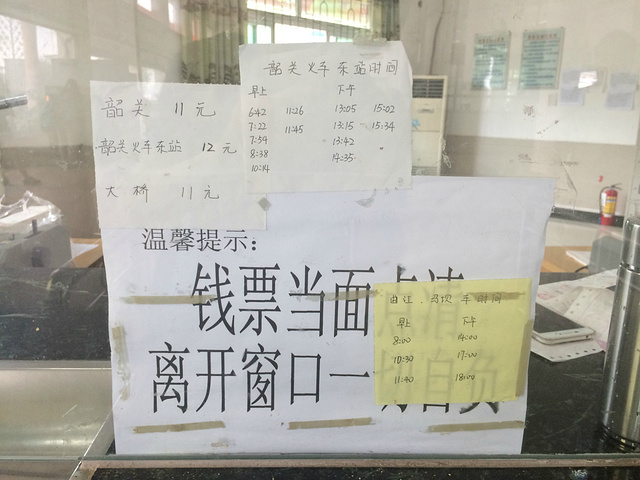 韶关 11元
韶关火车东站 12元
大桥 11元
韶关火车东站时间
早上 下午
6:42 11:26 13:05 15:02
7:22 11:45 13:15 15:34
7:59 13:42
8:38 14:35
10:14
温馨提示：
钱票当面点清
离开窗口一切自负
曲江、乌坝车时间
早上 下午
8:00 14:00
10:30 17:00
11:40 18:00